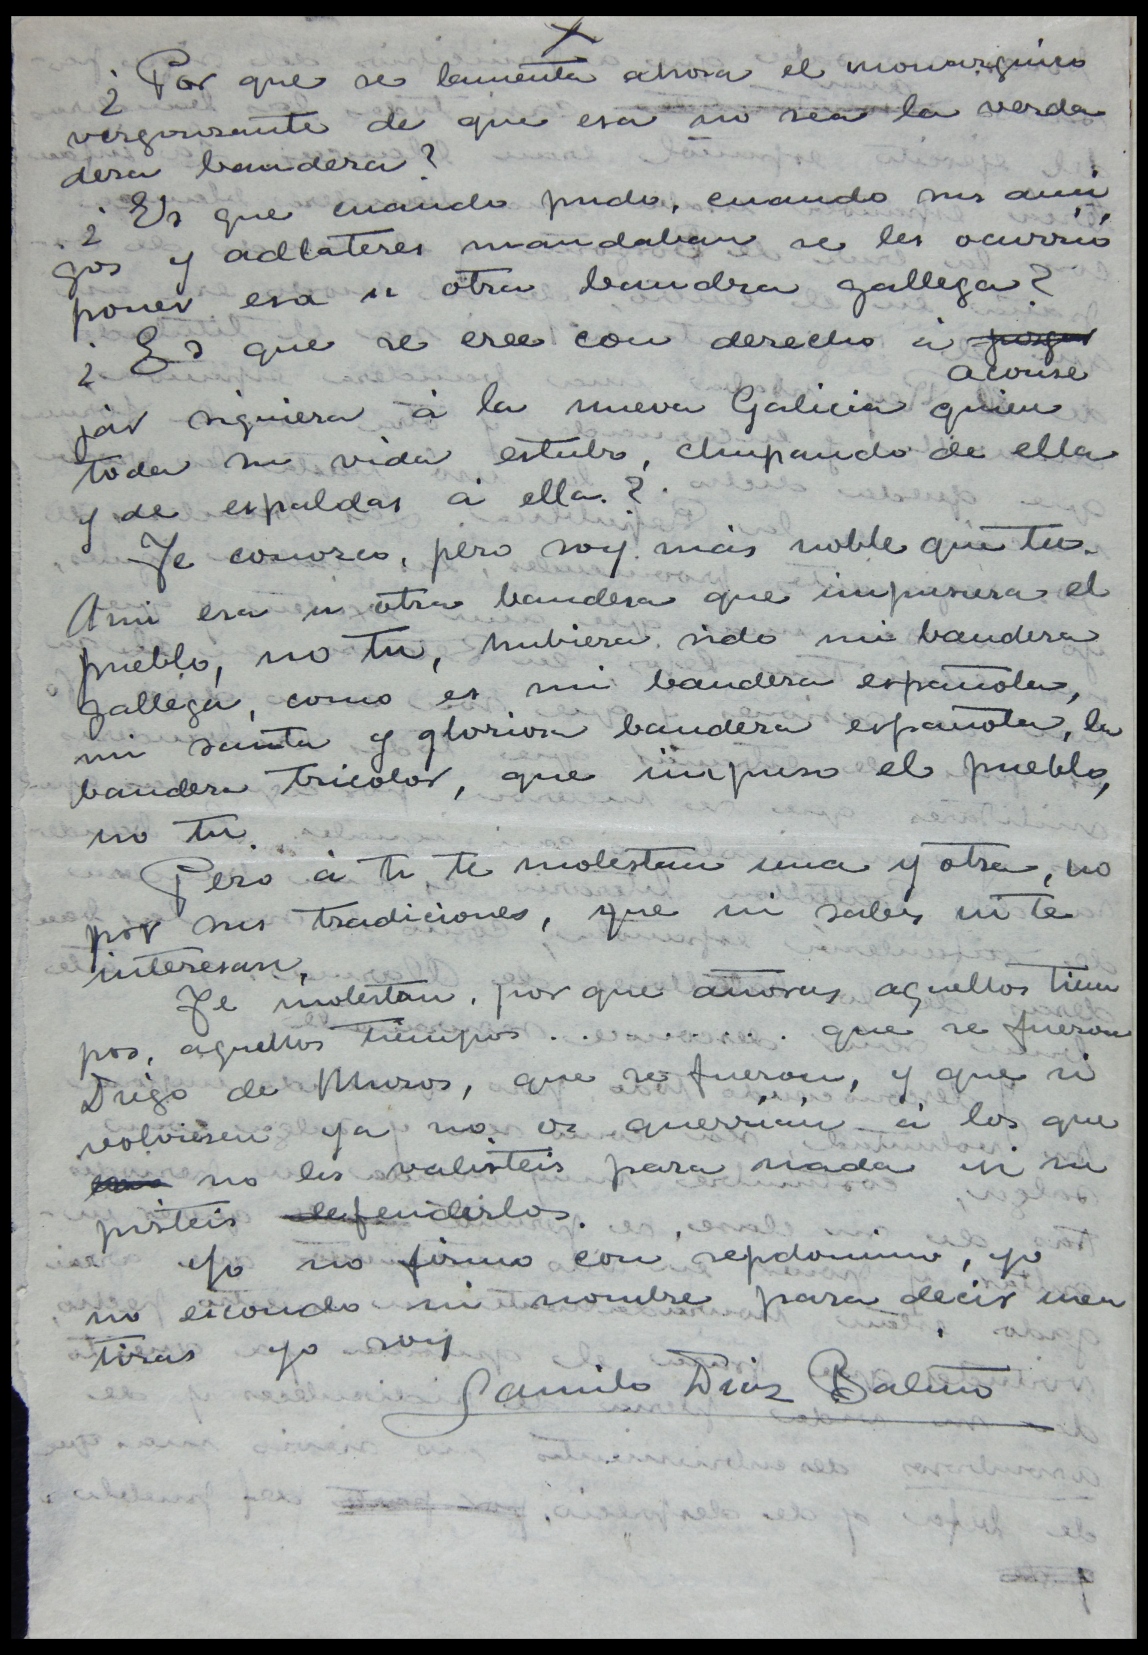 ¿ Por que se lamenta ahora el monarquico
vergonzante de que esa no sea la verda
dera bandera?
¿ Es que cuando pudo, cuando sus ami
gos y adlateres mandaban se les ocurrió
poner esa u otra bandra gallega?
¿ Es que se cree con derecho á juzgar
aconse
jar siguiera á la nueva Galicia quien
toda su vida estubo, chupando de ella
y de espaldas á ella.?
Te conozco, pero soy más noble que tu.
A mi esa u otra bandera que impusiera el
pueblo, no tu, hubiera sido mi bandera
gallega, como es mi bandera española,
mi santa y gloriosa bandera española, la
bandera tricolor, que impuso el pueblo,
no tu.
Pero á ti te molestan una y otra, no
por sus tradiciones, que ni sabes ni te
interesan.
Te molestan, por que añoras aquellos tiem
pos, aquellos tiempos . . . . . . . . que se fueron
Drigo de Muros, que se fueron, y que si
volviesen ya no os querrían á los que
no les valisteis para nada ni su
pisteis defenderlos.
Yo no firmo con sepdonimo, yo
no escondo mi nombre para decir men
tiras yo soy
Camilo Diaz Baliño